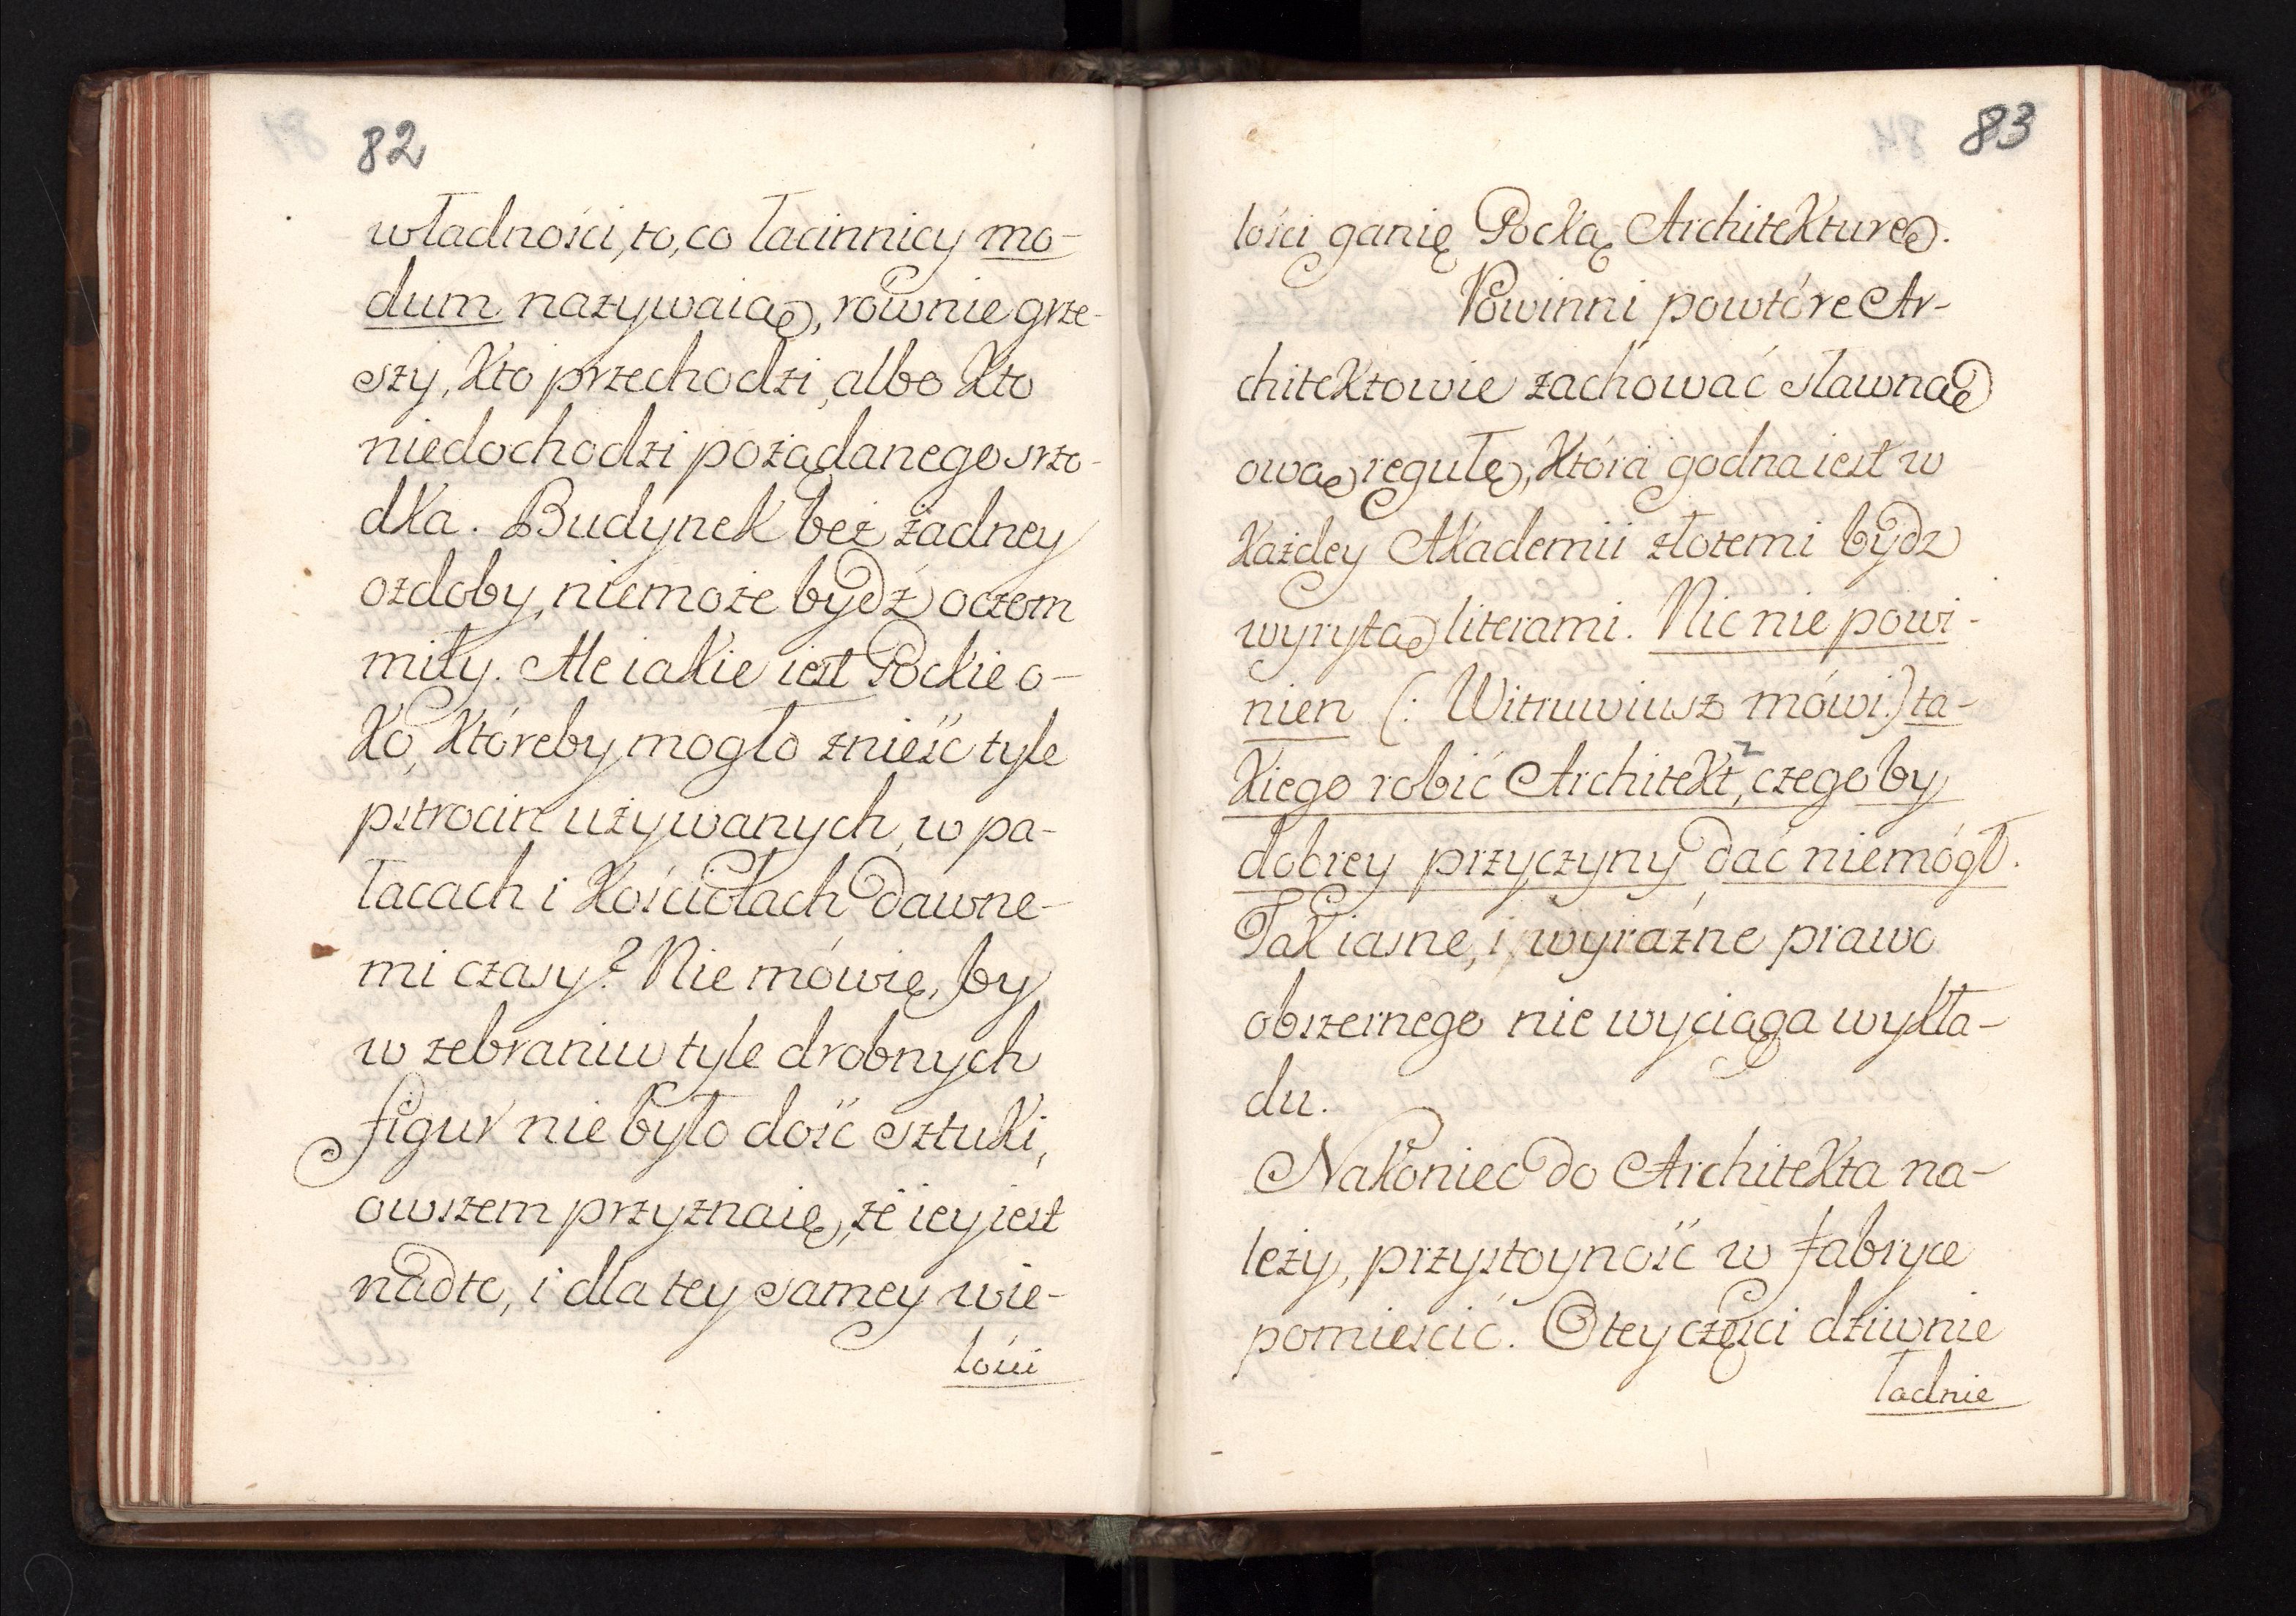 82
władności, to, co łacinnicy mo-
dum nazywaią, rownie grze-
szy, kto przechodzi, albo kto
niedochodzi pożądanego srzo-
dka. Budynek bez żadney
ozdoby, niemoże bydź oczom
miły. Ale iakie iest Gockie o-
ko, któreby mogło znieść tyle
pstrocin używanych, w pa-
łacach i kościołach dawne-
mi czasy? Nie mówię, by
w zebraniu tyle drobnych
figur nie było dość sztuki,
owszem przyznaię, że iey iest
nadto, i dla tey samey wie-
lości
83
lości ganię Gocką Architekturę.
Powinni powtóre Ar-
chitektowie zachować sławną
ową regułę, która godna iest w
każdey Akademii złotemi bydz
wyrytą literami. Nic nie powi-
nien (: Witruwiusz mówi:) ta-
kiego robić Architekt, czegoby
dobrey przyczyny dać niemógł.
Tak iasne, i wyraźne prawo
obszernego nie wyciąga wykła-
du.
Nakoniec do Architekta na-
leży, przystoyność w fabryce
pomieścić. O tey części dziwnie
ładnie